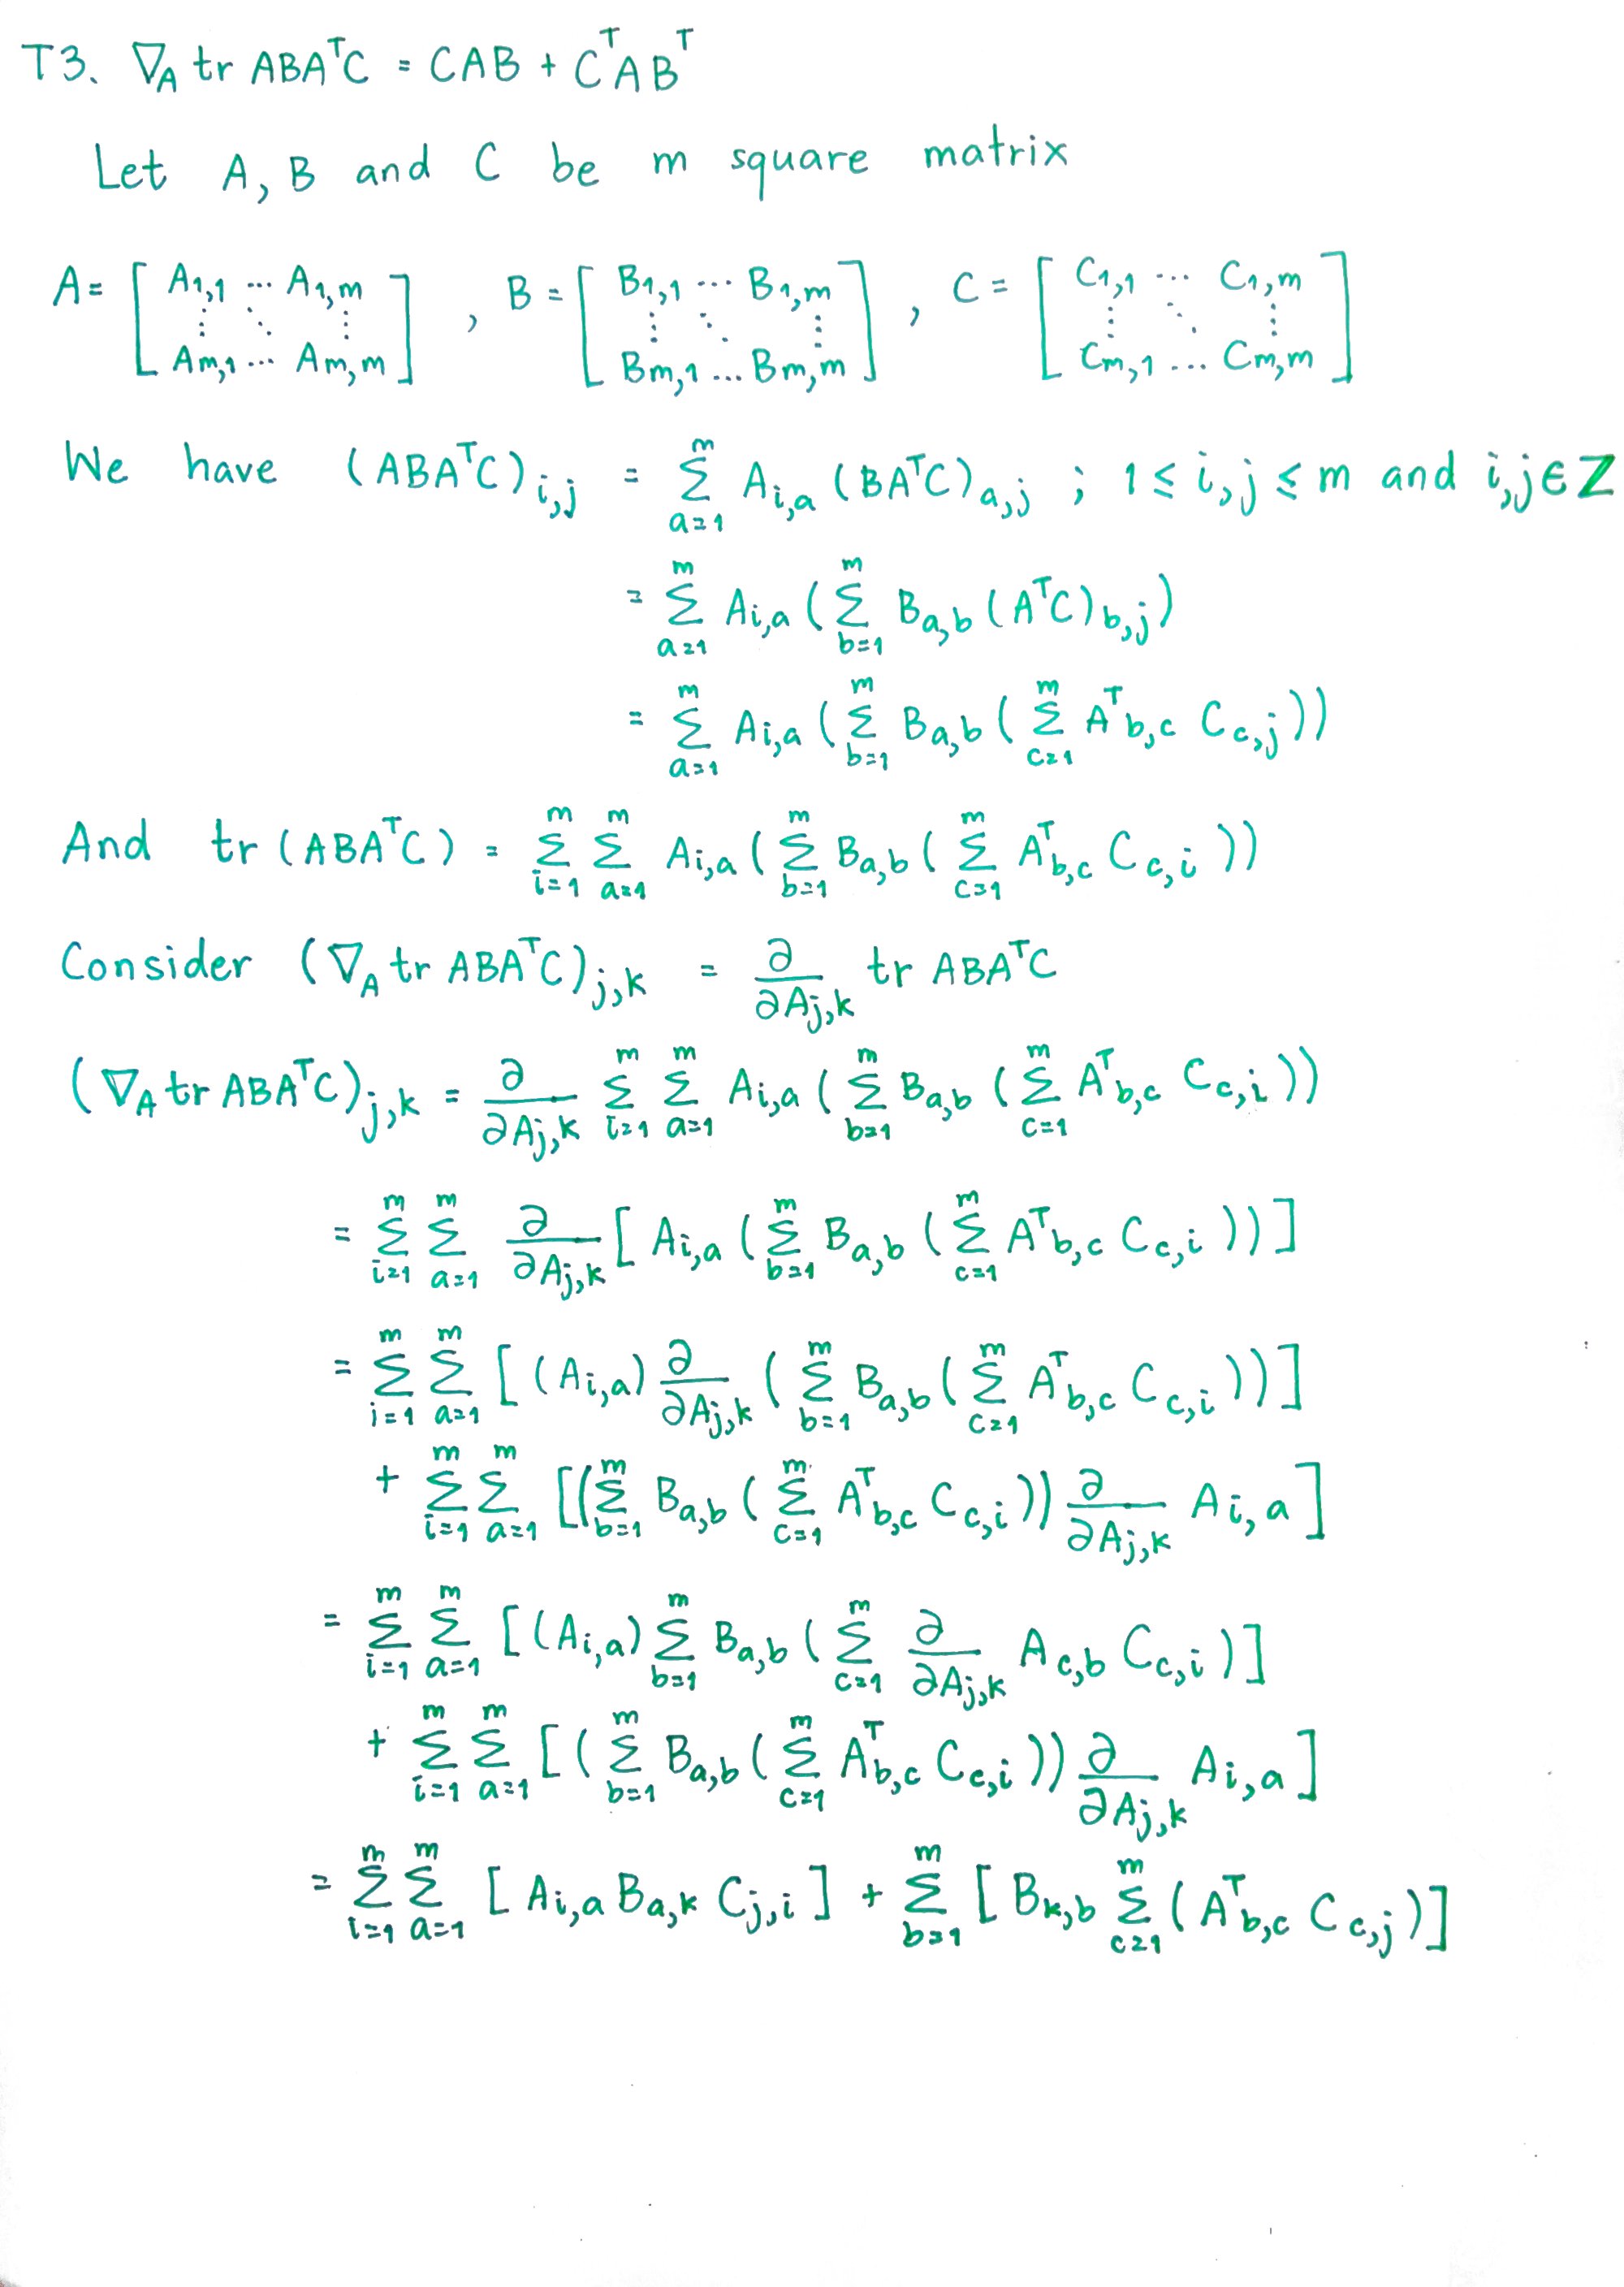 T3. ∇_A tr ABA^TC = CAB + C^TAB^T
Let A, B and C be m square matrix
A = [ A_{1,1} ... A_{1,m} ⋮ ⋱ ⋮ A_{m,1} ... A_{m,m} ] , B = [ B_{1,1} ... B_{1,m} ⋮ ⋱ ⋮ B_{m,1} ... B_{m,m} ] , C = [ C_{1,1} ... C_{1,m} ⋮ ⋱ ⋮ C_{m,1} ... C_{m,m} ]
We have (ABA^TC)_{i,j} = \sum_{a=1}^{m} A_{i,a} (BA^TC)_{a,j} ; 1 ≤ i,j ≤ m and i,j ∈ Z
= \sum_{a=1}^{m} A_{i,a} ( \sum_{b=1}^{m} B_{a,b} (A^TC)_{b,j} )
= \sum_{a=1}^{m} A_{i,a} ( \sum_{b=1}^{m} B_{a,b} ( \sum_{c=1}^{m} A^T_{b,c} C_{c,j} ))
And tr (ABA^TC) = \sum_{i=1}^{m} \sum_{a=1}^{m} A_{i,a} ( \sum_{b=1}^{m} B_{a,b} ( \sum_{c=1}^{m} A^T_{b,c} C_{c,i} ))
Consider (∇_A tr ABA^TC)_{j,k} = \frac{∂}{∂A_{j,k}} tr ABA^TC
(∇_A tr ABA^TC)_{j,k} = \frac{∂}{∂A_{j,k}} \sum_{i=1}^{m} \sum_{a=1}^{m} A_{i,a} ( \sum_{b=1}^{m} B_{a,b} ( \sum_{c=1}^{m} A^T_{b,c} C_{c,i} ))
= \sum_{i=1}^{m} \sum_{a=1}^{m} \frac{∂}{∂A_{j,k}} [ A_{i,a} ( \sum_{b=1}^{m} B_{a,b} ( \sum_{c=1}^{m} A^T_{b,c} C_{c,i} ))]
= \sum_{i=1}^{m} \sum_{a=1}^{m} [ (A_{i,a}) \frac{∂}{∂A_{j,k}} ( \sum_{b=1}^{m} B_{a,b} ( \sum_{c=1}^{m} A^T_{b,c} C_{c,i} ))]
+ \sum_{i=1}^{m} \sum_{a=1}^{m} [( \sum_{b=1}^{m} B_{a,b} ( \sum_{c=1}^{m} A^T_{b,c} C_{c,i} )) \frac{∂}{∂A_{j,k}} A_{i,a} ]
= \sum_{i=1}^{m} \sum_{a=1}^{m} [ (A_{i,a}) \sum_{b=1}^{m} B_{a,b} ( \sum_{c=1}^{m} \frac{∂}{∂A_{j,k}} A_{c,b} C_{c,i} )]
+ \sum_{i=1}^{m} \sum_{a=1}^{m} [ ( \sum_{b=1}^{m} B_{a,b} ( \sum_{c=1}^{m} A^T_{b,c} C_{c,i} )) \frac{∂}{∂A_{j,k}} A_{i,a} ]
= \sum_{i=1}^{m} \sum_{a=1}^{m} [ A_{i,a} B_{a,k} C_{j,i} ] + \sum_{b=1}^{m} [ B_{k,b} \sum_{c=1}^{m} ( A^T_{b,c} C_{c,j} )]